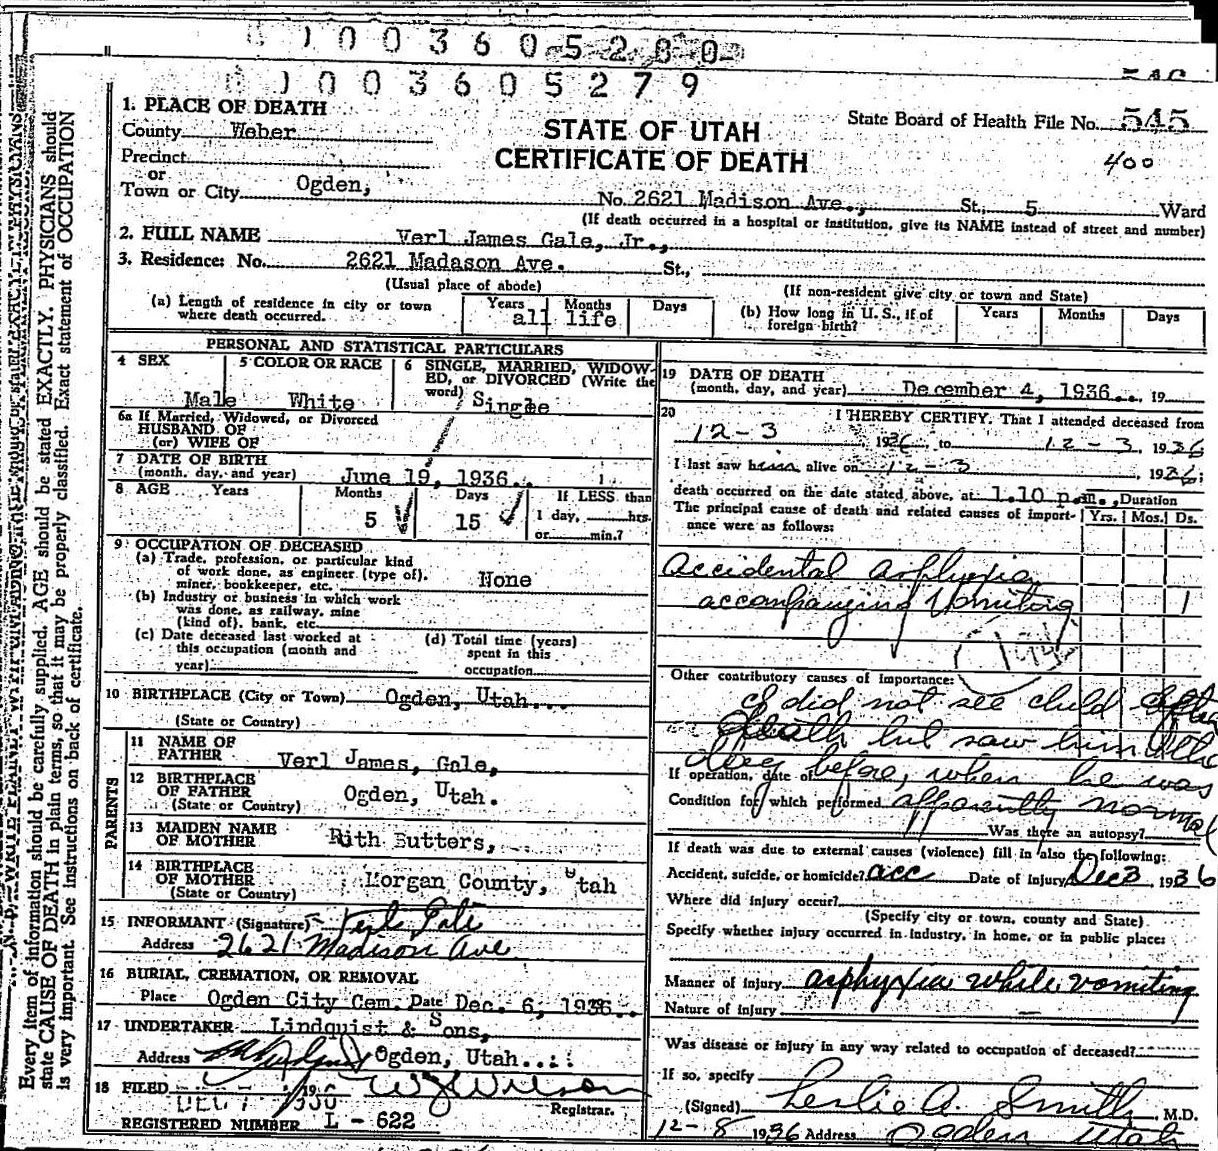 0 1 0 0 3 6 0 5 2 8 0
0 1 0 0 3 6 0 5 2 7 9
1. PLACE OF DEATH
County Weber
Precinct
or
Town or City Ogden,
STATE OF UTAH
CERTIFICATE OF DEATH
State Board of Health File No. 545
400
No. 2621 Madison Ave., St., 5 Ward
(If death occurred in a hospital or institution, give its NAME instead of street and number)
2. FULL NAME Verl James Gale, Jr.,
3. Residence: No. 2621 Madason Ave. St.,
(Usual place of abode)
(If non-resident give city or town and State)
(a) Length of residence in city or town where death occurred. Years Months Days
all life
(b) How long in U. S., if of foreign birth? Years Months Days
PERSONAL AND STATISTICAL PARTICULARS
4 SEX
Male
5 COLOR OR RACE
White
6 SINGLE, MARRIED, WIDOWED, or DIVORCED (Write the word)
Single
6a If Married, Widowed, or Divorced
HUSBAND OF
(or) WIFE OF
7 DATE OF BIRTH
(month, day, and year) June 19, 1936..
8 AGE Years Months Days If LESS than
5 15 1 day, hrs.
or min.?
9 OCCUPATION OF DECEASED
(a) Trade, profession, or particular kind
of work done, as engineer (type of),
miner, bookkeeper, etc. None
(b) Industry or business in which work
was done, as railway, mine
(kind of), bank, etc.
(c) Date deceased last worked at
this occupation (month and
year)
(d) Total time (years)
spent in this
occupation
10 BIRTHPLACE (City or Town) Ogden, Utah...
(State or Country)
PARENTS
11 NAME OF
FATHER Verl James, Gale,
12 BIRTHPLACE
OF FATHER Ogden, Utah.
(State or Country)
13 MAIDEN NAME
OF MOTHER Rith Butters,
14 BIRTHPLACE
OF MOTHER Morgan County, Utah
(State or Country)
15 INFORMANT (Signature) Verl Gale
Address 2621 Madison Ave
16 BURIAL, CREMATION, OR REMOVAL
Place Ogden City Cem. Date Dec. 6, 1936..
17 UNDERTAKER Lindquist & Sons,
Address Ogden, Utah...
18 FILED DEC 7 1936 W J Wilson
Registrar.
REGISTERED NUMBER L - 622
19 DATE OF DEATH
(month, day, and year) December 4, 1936.., 19
20 I HEREBY CERTIFY, That I attended deceased from
12-3 1936 to 12-3 1936
I last saw him alive on 12-3, 1936;
death occurred on the date stated above, at 1.10 p.m., Duration
The principal cause of death and related causes of importance were as follows: Yrs. Mos. Ds.
Accidental asphyxia
accompanying vomiting 1
Other contributory causes of importance:
I did not see child after
death but saw him the
day before, when he was
apparently normal
If operation, date of
Condition for which performed
Was there an autopsy?
If death was due to external causes (violence) fill in also the following:
Accident, suicide, or homicide? acc Date of injury Dec 3, 1936
Where did injury occur?
(Specify city or town, county and State)
Specify whether injury occurred in industry, in home, or in public place:
Manner of injury asphyxia while vomiting
Nature of injury —
Was disease or injury in any way related to occupation of deceased?
If so, specify
(Signed) Leslie A. Smith, M.D.
12-8 1936 Address Ogden Utah
Every item of information should be carefully supplied. AGE should be stated EXACTLY. PHYSICIANS should
state CAUSE OF DEATH in plain terms, so that it may be properly classified. Exact statement of OCCUPATION
is very important. See instructions on back of certificate.